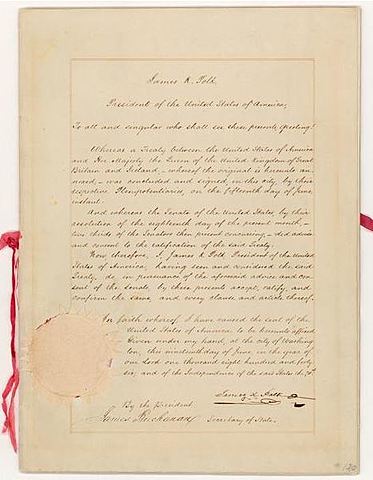 James K. Polk,
President of the United States of America,
To all and singular who shall see these presents, Greeting:
Whereas a Treaty between the United States of America
and Her Majesty the Queen of the United Kingdom of Great
Britain and Ireland - whereof the original is hereunto an-
nexed, - was concluded and signed in this city, by their
respective Plenipotentiaries, on the fifteenth day of June,
instant.
And whereas the Senate of the United States, by their
resolution of the eighteenth day of the present month, -
two thirds of the Senators then present concurring, - did advise
and consent to the ratification of the said Treaty.
Now therefore, I, James K. Polk, President of the United
States of America, having seen and considered the said
Treaty, do, in pursuance of the aforesaid advice and con-
sent of the Senate, by these presents, accept, ratify, and
confirm the same, and every clause and article thereof.
In faith whereof, I have caused the seal of the
United States of America to be hereunto affixed.
Given under my hand, at the city of Washing
ton, this nineteenth day of June, in the year of
our Lord one thousand eight hundred and forty
six, and of the Independence of the said States the 70th.
James K. Polk
By the president:
James Buchanan Secretary of State.